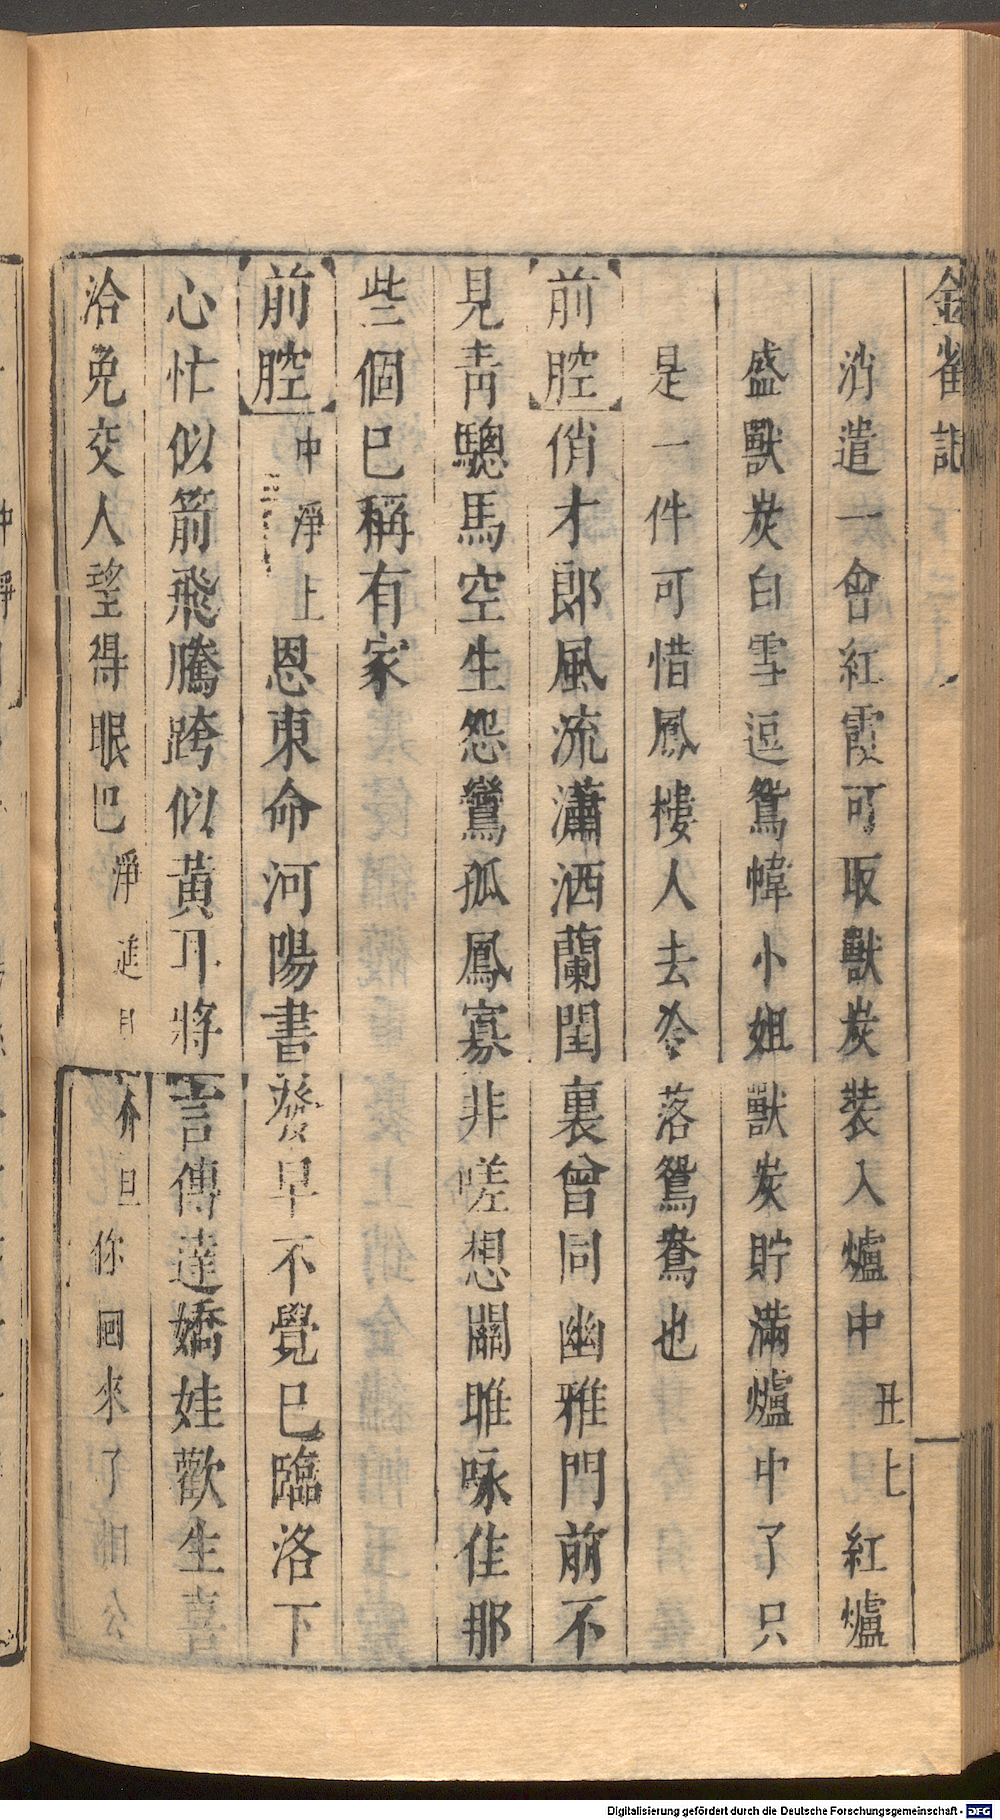 金雀記
消遣一會紅霞可取獸炭裝入爐中丑上紅爐
盛獸炭白雪逗鴛幃小姐獸炭貯滿爐中了只
是一件可惜鳳樓人去冷落鴛鴦也
前腔俏才郎風流瀟洒蘭閨裏曾同幽雅門前不
見青驄馬空生怨鸞孤鳳寡非嗟想關雎咏佳那
些個巳稱有家
前腔中淨上恩東命河陽書發早不覺巳臨洛下
心忙似箭飛騰跨似黃耳將言傳達嬌娃歡生喜
洽免交人望得眼巴淨進介旦你回來了
Digitalisierung gefördert durch die Deutsche Forschungsgemeinschaft - DFG